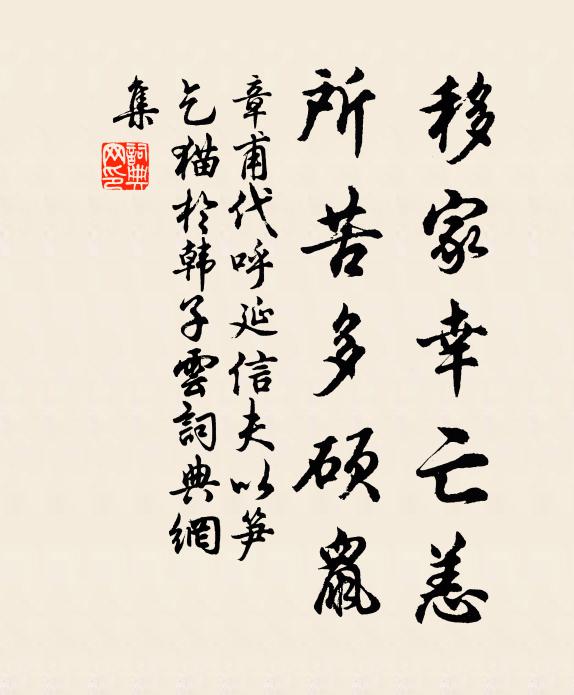 移家幸亡恙
所苦多硕鼠
章甫代呼延信夫以笋
乞猫於韩子雲詞典網
集
詞典
网印